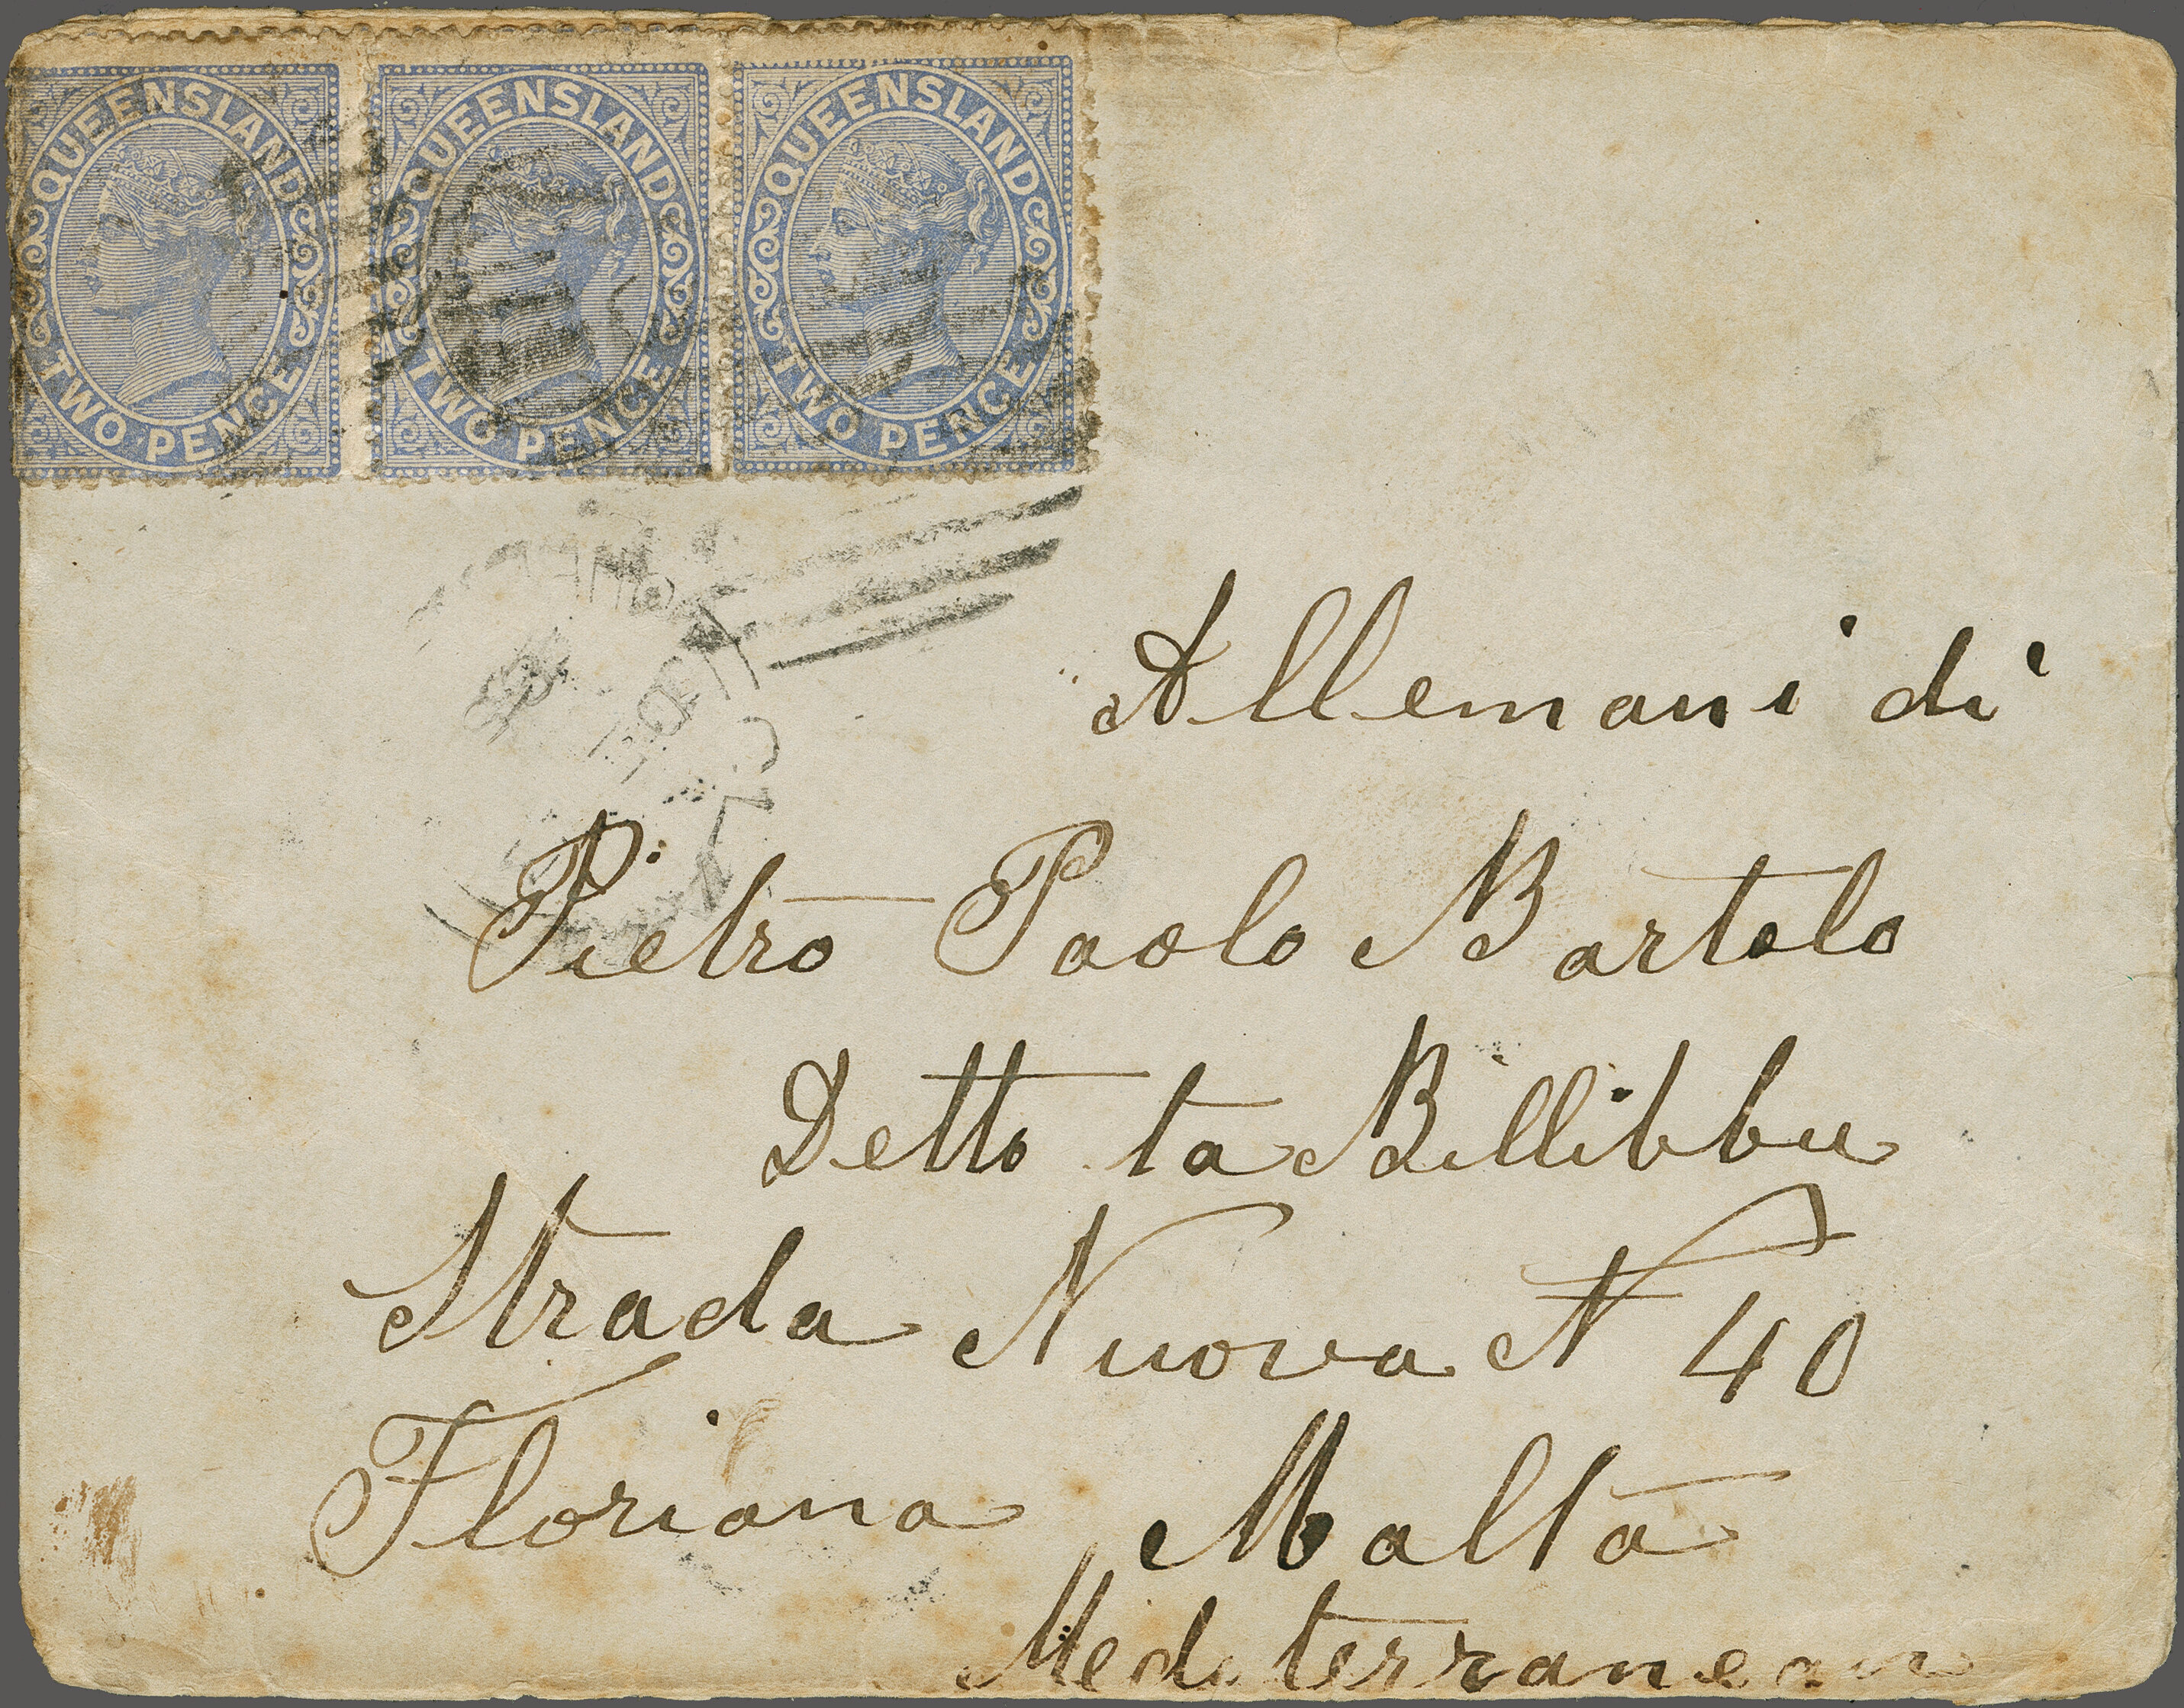 QUEENSLAND
TWO PENCE
QUEENSLAND
TWO PENCE
QUEENSLAND
TWO PENCE
Allemani di
Pietro Paolo Bartolo
Detto ta Billibbu
Strada Nuova N 40
Floriana Malta
Mediterranean